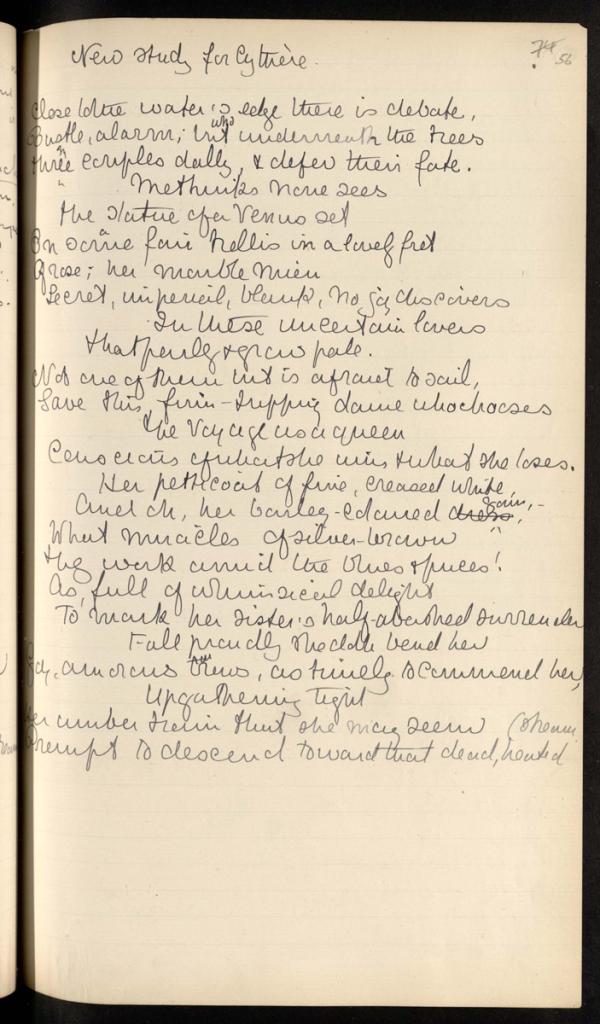 New Study for Cythère.
56
Close to the water's edge there is debate,
Bustle, alarm; but who underneath the trees
three couples dally, & defer their fate.
Methinks none sees
the Statue of a Venus set
On some fair trellis in a lovely fret
Of rose; her marble mien
Secret, imperial, blank, no joy discovers
In these uncertain lovers
that parley & grow pale.
Not one of them but is afraid to sail,
Save this, firm-tripping dame who chooses
the Voyage as a queen
Conscious of what she wins & what she loses.
Her petticoat of fine, creased white,
And oh, her barley-coloured dress gown,-
What miracles of silver-brown
they work amid the blues & puces!
As, full of whimsical delight
To mark her sister's half-abashed surrender
Full proudly she doth bend her
Gay, amorous brows, as timely to commend her,
Upgathering tight
Her amber train that she may seem
Prompt to descend toward that dead, heated
(stream